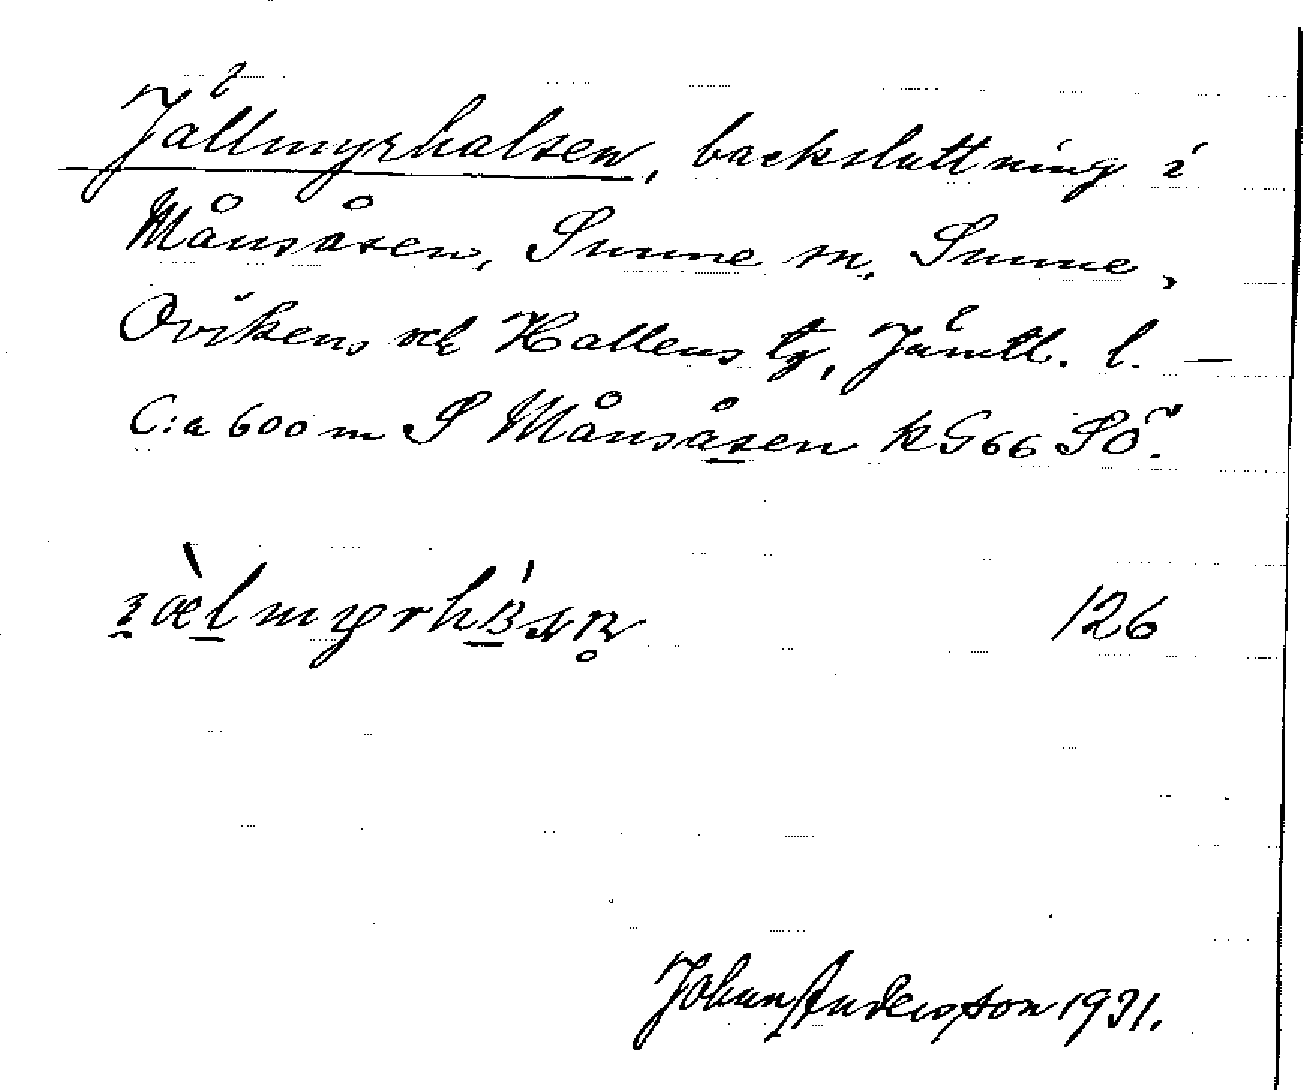 Jällmyrhalsen, backsluttning i
Månsåsen, Sunne sn, Sunne,
Ovikens och Hallens tg, Jämtl. l. —
C:a 600 m S Månsåsen kG66 SÖ.
126
Johan Andersson 1931.